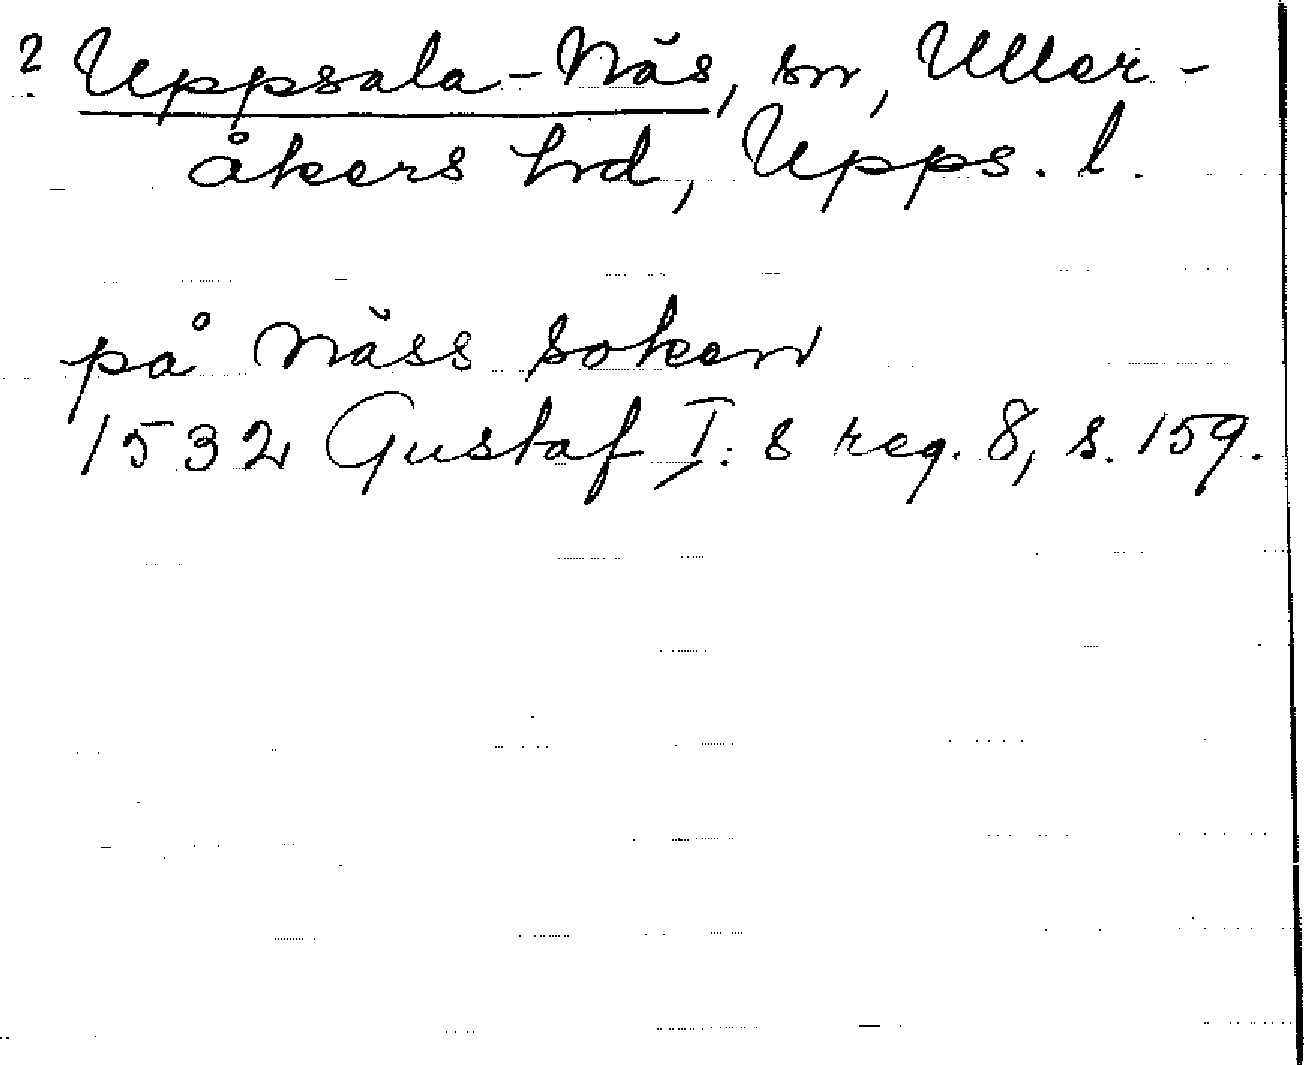 ? Uppsala-Näs, sn, Uller-
åkers hd, Upps. l.
på Näss soken
1532 Gustaf I:s reg. 8, s. 159.